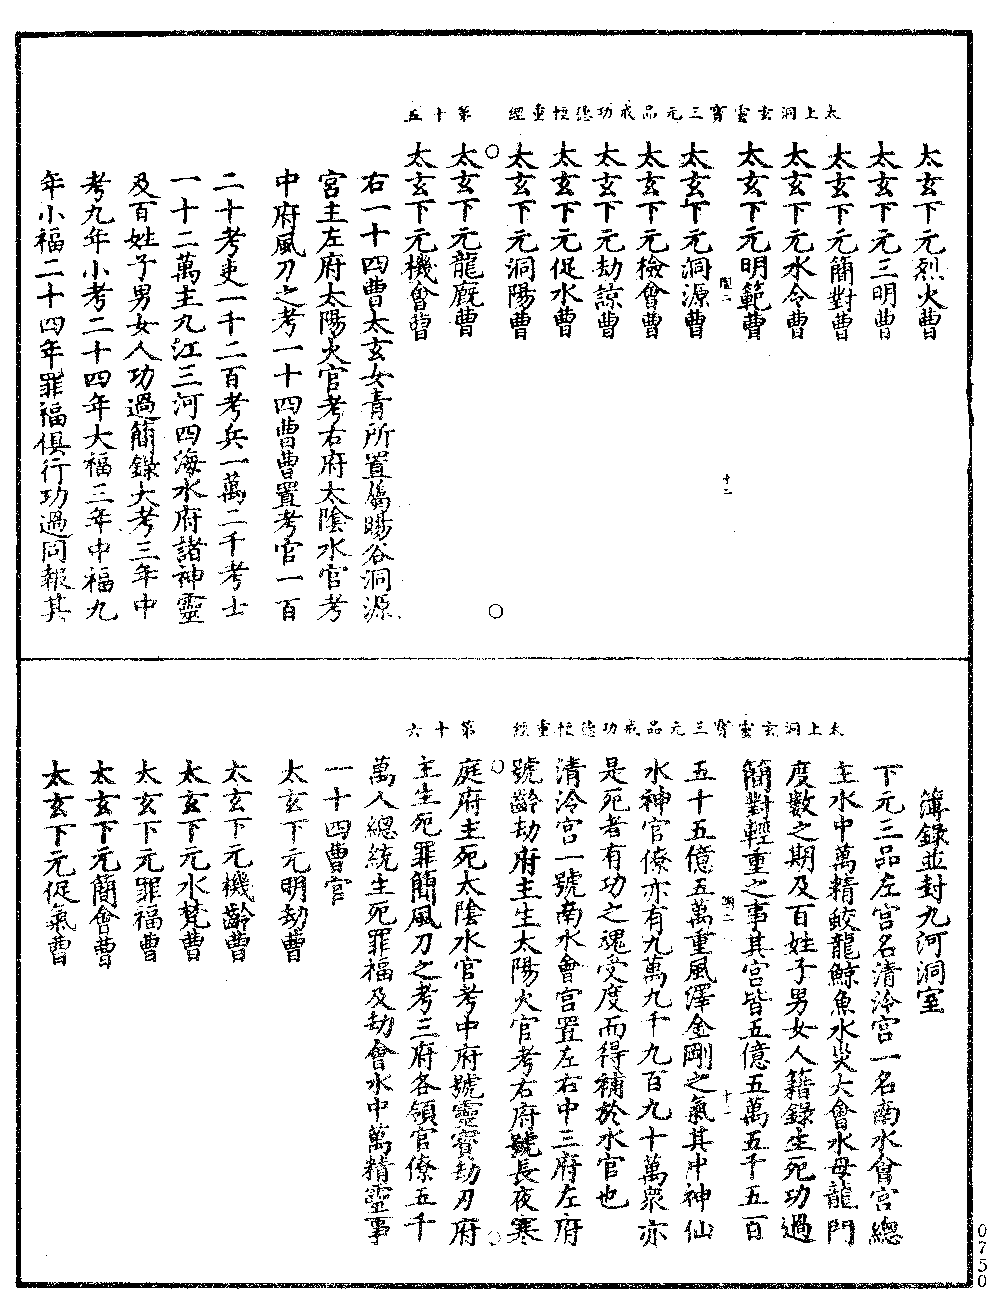 太上洞玄靈寶三元品戒功德輕重經　第十五
太玄下元烈火曹
太玄下元三明曹
太玄下元簡對曹
太玄下元水令曹
太玄下元明範曹
太玄下元洞源曹
太玄下元檢會曹
太玄下元劫諒曹
太玄下元促水曹
太玄下元洞陽曹
太玄下元龍廐曹
太玄下元機會曹
右一十四曹太玄女青所置屬暘谷洞源
宮主左府太陽火官考右府太陰水官考
中府風刀之考一十四曹曹置考官一百
二十考吏一千二百考兵一萬二千考士
一十二萬主九江三河四海水府諸神靈
及百姓子男女人功過簡錄大考三年中
考九年小考二十四年大福三年中福九
年小福二十四年罪福俱行功過同報其
十二
太上洞玄靈寶三元品戒功德輕重經　第十六
簿錄並封九河洞室
下元三品左宮名清泠宮一名南水會宮總
主水中萬精鮫龍鯨魚水災大會水母龍門
度數之期及百姓子男女人籍錄生死功過
簡對輕重之事其宮皆五億五萬五千五百
五十五億五萬重風澤金剛之氣其中神仙
水神官僚亦有九萬九千九百九十萬衆亦
是死者有功之魂受度而得補於水官也
清泠宮一號南水會宮置左右中三府左府
號齡劫府主生太陽火官考右府號長夜寒
庭府主死太陰水官考中府號靈寶劫刃府
主生死罪簡風刀之考三府各領官僚五千
萬人總統生死罪福及劫會水中萬精靈事
一十四曹官
太玄下元明劫曹
太玄下元機齡曹
太玄下元水梵曹
太玄下元罪福曹
太玄下元簡會曹
太玄下元促氣曹
十一
0750